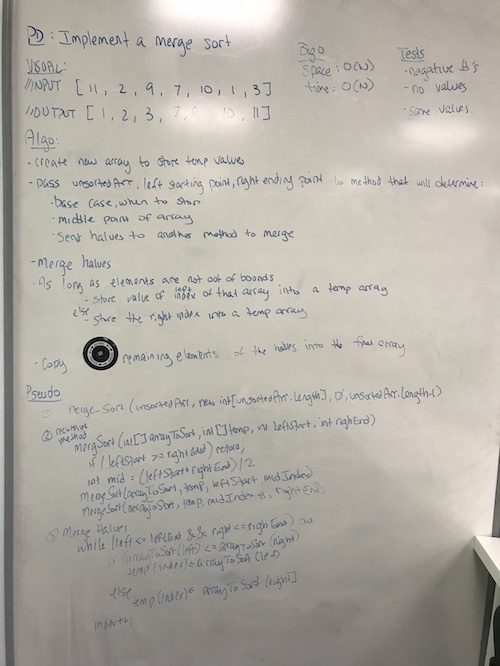 PD: Implement a merge sort
VISUAL:
//INPUT [11, 2, 9, 7, 10, 1, 3]
//OUTPUT [1, 2, 3, 7, 9, 10, 11]
Big O
Space: O(N)
time: O(N)
Tests
-negative #'s
-no values
-same values
Algo:
-create new array to store temp values
-pass unsortedArr, left starting point, right ending point to method that will determine:
-base case, when to stop
-middle point of array
-Sent halves to another method to merge
-Merge halves
-As long as elements are not out of bounds
-store value of left index of that array into a temp array
else - store the right index into a temp array
-Copy remaining elements of the halves into the final array
Pseudo
① merge-Sort (unsortedArr, new int[unsortedArr.length], 0, unsortedArr.length-1)
② recursive method
mergSort(int[] arrayToSort, int[] temp, int leftStart, int righEnd)
if (leftStart >= rightEnd) return;
int mid = (leftStart + rightEnd)/2
mergeSort(arrayToSort, temp, leftStart, midIndex)
mergeSort(arrayToSort, temp, midIndex+1, rightEnd)
③ Merge Halves
while (left <= leftEnd && right <= righEnd)
if (arrayToSort(left) <= arrayToSort(right)
temp(index) = arrayToSort(left)
else
temp[index] = arrayToSort[right]